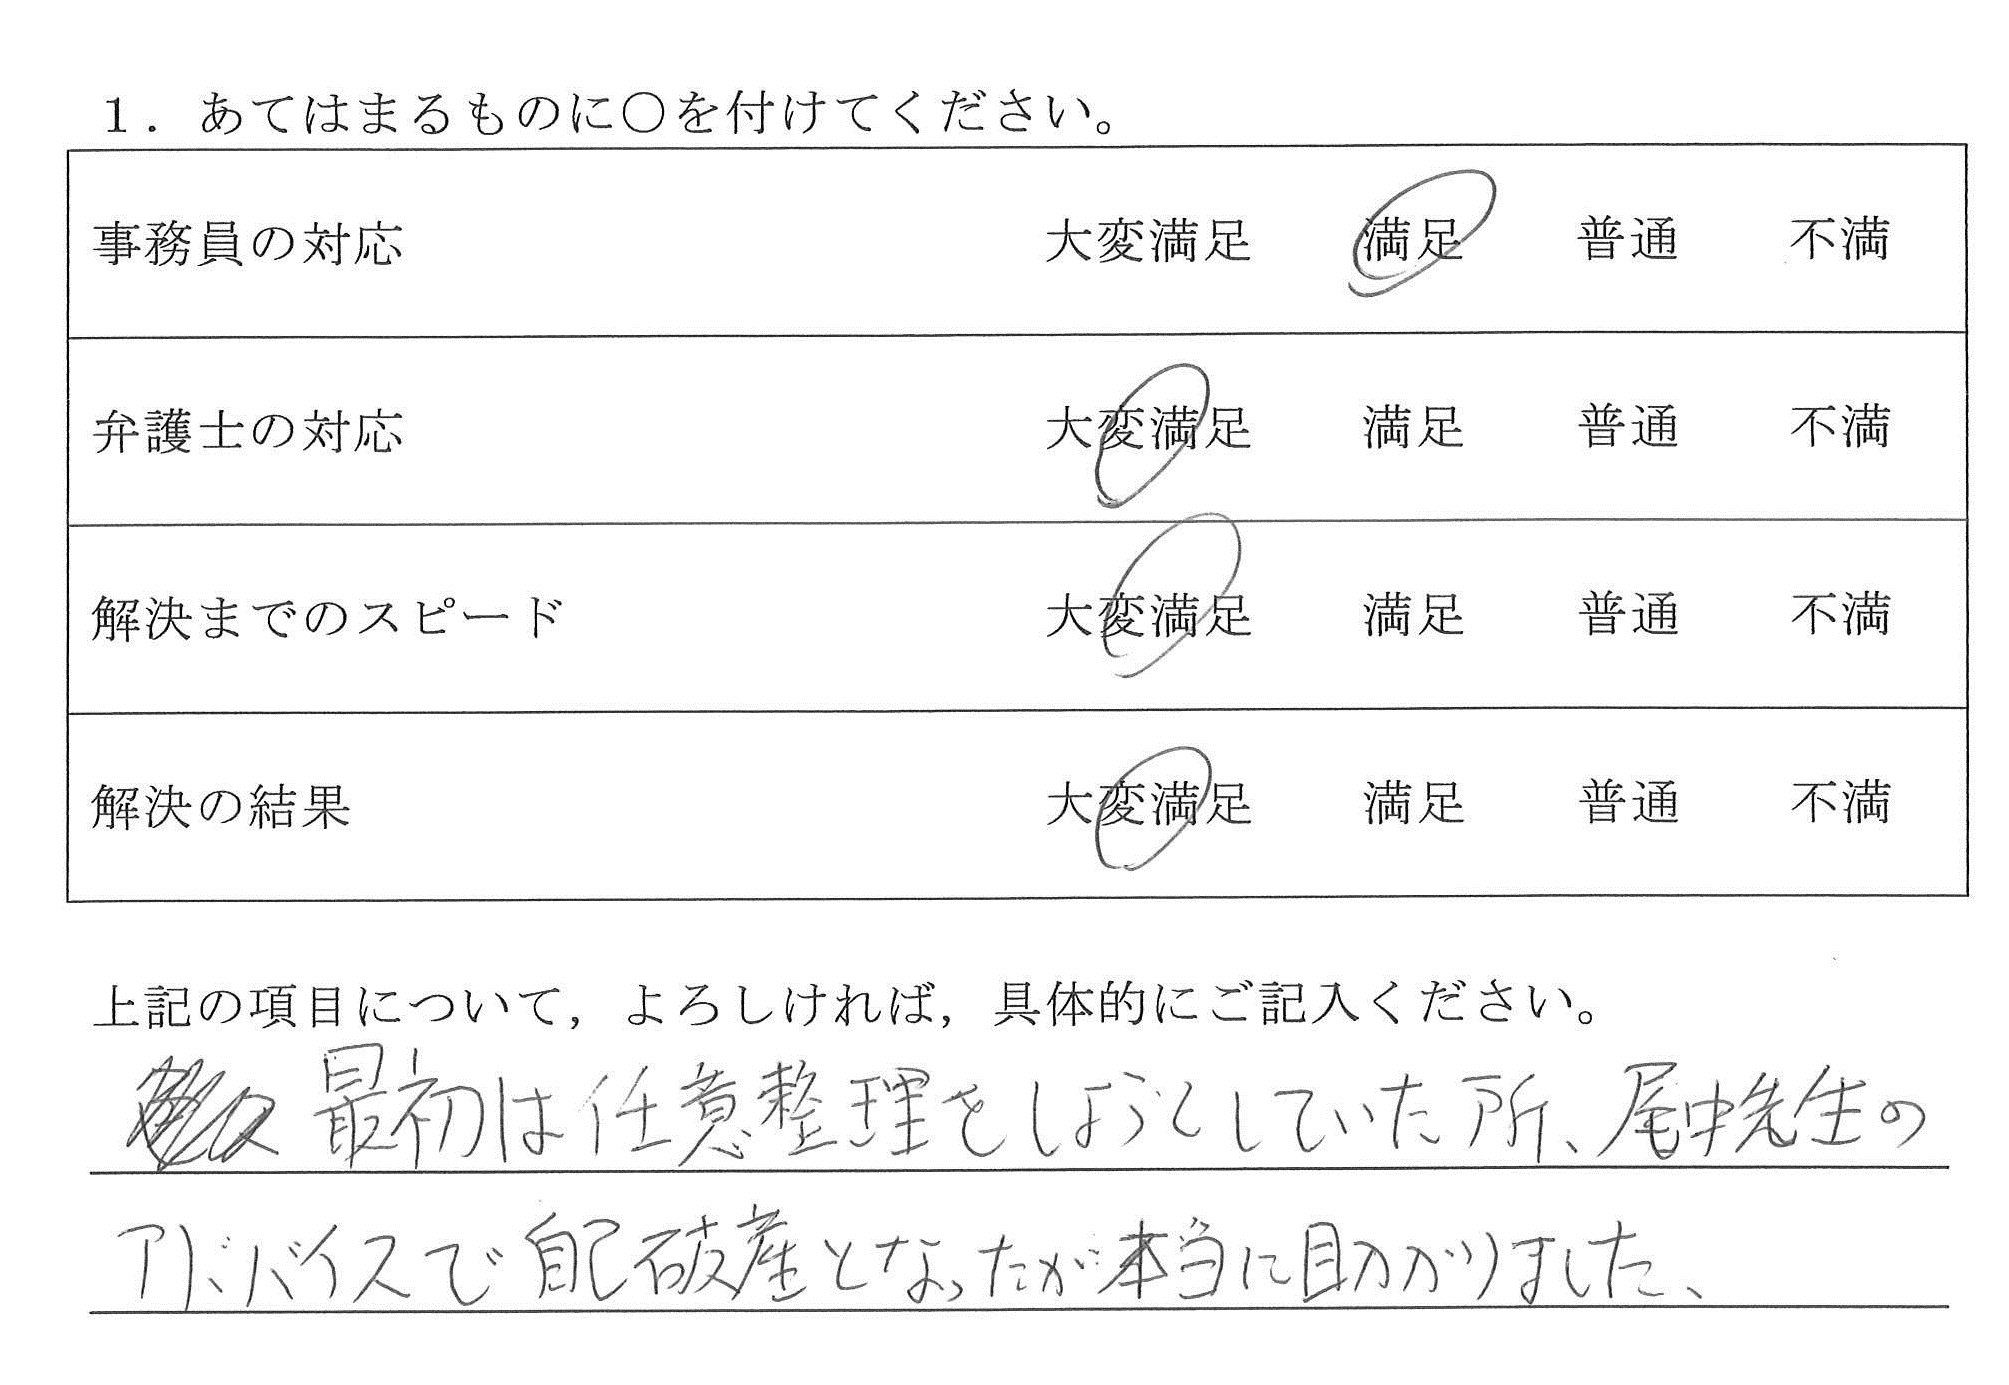 1．あてはまるものに〇を付けてください。
事務員の対応 大変満足 満足 普通 不満
弁護士の対応 大変満足 満足 普通 不満
解決までのスピード 大変満足 満足 普通 不満
解決の結果 大変満足 満足 普通 不満
上記の項目について，よろしければ，具体的にご記入ください。
最初は任意整理をしようとしていた所、尾中先生の
アドバイスで自己破産となったが本当に助かりました、